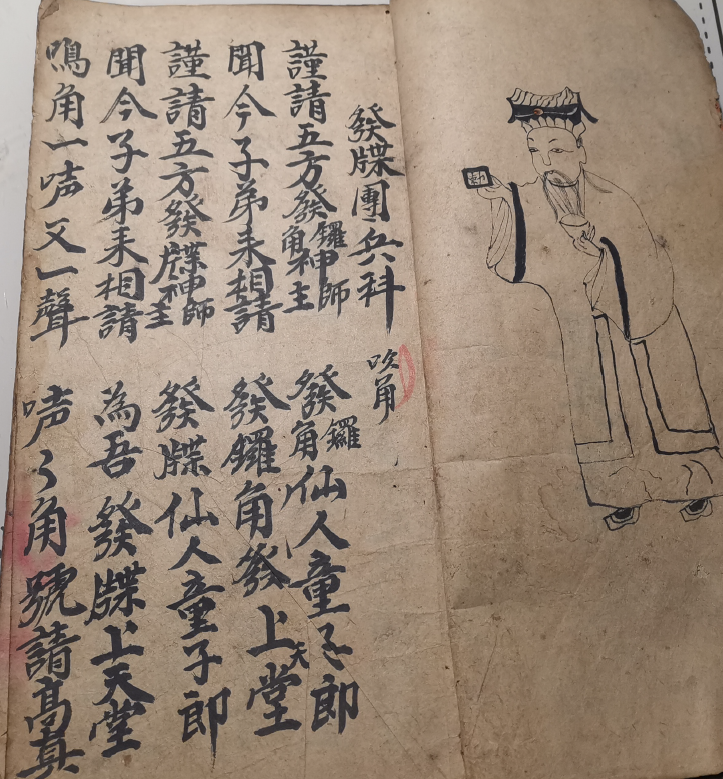 發牒團兵科 吹角
謹請五方發鑼角神師主 發鑼角仙人童子郎
聞今子弟来相請 發鑼角發上天堂
謹請五方發牒神師主 發牒仙人童子郎
聞今子弟来相請 為吾發牒上天堂
鳴角一声又一聲 声々角號請髙真